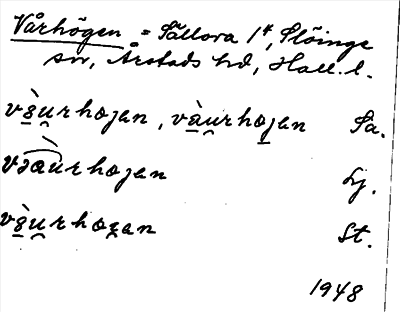 Vårhögen = Sällova 1⁴, Slöinge
sn, Årstads hd, Hall. l.
vɜ̀u̯rhœjan, vàu̯rhœjan Sa.
vɜæ̀urhœjan Lj.
vɜ̀u̯rhœʒan St.
1948